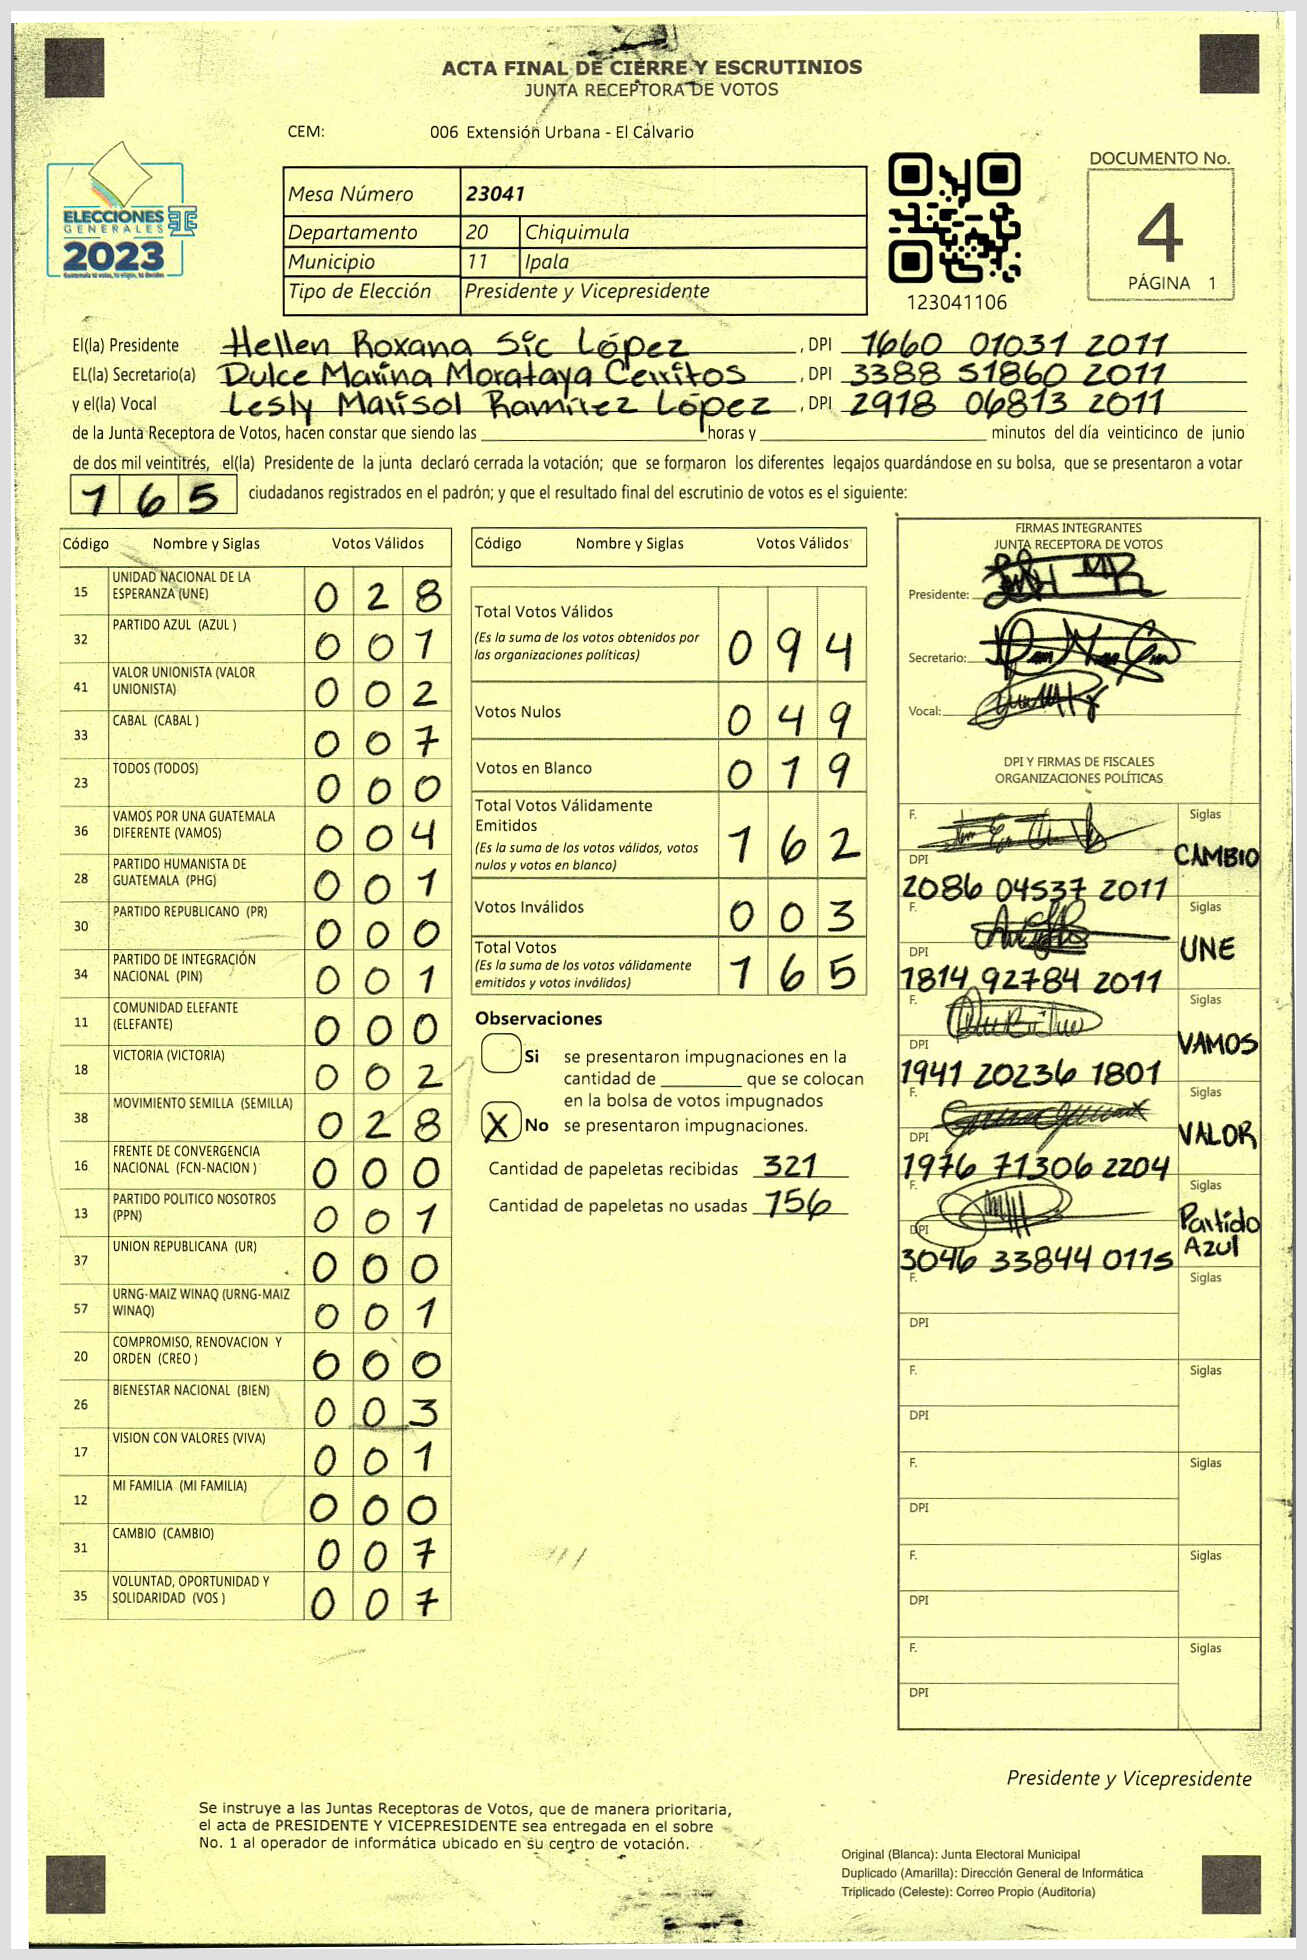 ACTA FINAL DE CIERRE Y ESCRUTINIOS
JUNTA RECEPTORA DE VOTOS
CEM: 006 Extensión Urbana - El Calvario
ELECCIONES
GENERALES
2023
Mesa Número 23041
Departamento 20 Chiquimula
Municipio 11 Ipala
Tipo de Elección Presidente y Vicepresidente
123041106
DOCUMENTO No.
4
PÁGINA 1
El(la) Presidente Hellen Roxana Sic López , DPI 1660 01031 2011
EL(la) Secretario(a) Dulce Marina Morataya Cerritos , DPI 3388 51860 2011
y el(la) Vocal Lesly Marisol Ramírez López , DPI 2918 06813 2011
de la Junta Receptora de Votos, hacen constar que siendo las horas y minutos del día veinticinco de junio
de dos mil veintitrés, el(la) Presidente de la junta declaró cerrada la votación; que se formaron los diferentes legajos guardándose en su bolsa, que se presentaron a votar
165 ciudadanos registrados en el padrón; y que el resultado final del escrutinio de votos es el siguiente:
Código Nombre y Siglas Votos Válidos
15 UNIDAD NACIONAL DE LA ESPERANZA (UNE) 0 2 8
32 PARTIDO AZUL (AZUL ) 0 0 1
41 VALOR UNIONISTA (VALOR UNIONISTA) 0 0 2
33 CABAL (CABAL ) 0 0 7
23 TODOS (TODOS) 0 0 0
36 VAMOS POR UNA GUATEMALA DIFERENTE (VAMOS) 0 0 4
28 PARTIDO HUMANISTA DE GUATEMALA (PHG) 0 0 1
30 PARTIDO REPUBLICANO (PR) 0 0 0
34 PARTIDO DE INTEGRACIÓN NACIONAL (PIN) 0 0 1
11 COMUNIDAD ELEFANTE (ELEFANTE) 0 0 0
18 VICTORIA (VICTORIA) 0 0 2
38 MOVIMIENTO SEMILLA (SEMILLA) 0 2 8
16 FRENTE DE CONVERGENCIA NACIONAL (FCN-NACION ) 0 0 0
13 PARTIDO POLITICO NOSOTROS (PPN) 0 0 1
37 UNION REPUBLICANA (UR) 0 0 0
57 URNG-MAIZ WINAQ (URNG-MAIZ WINAQ) 0 0 1
20 COMPROMISO, RENOVACION Y ORDEN (CREO ) 0 0 0
26 BIENESTAR NACIONAL (BIEN) 0 0 3
17 VISION CON VALORES (VIVA) 0 0 1
12 MI FAMILIA (MI FAMILIA) 0 0 0
31 CAMBIO (CAMBIO) 0 0 7
35 VOLUNTAD, OPORTUNIDAD Y SOLIDARIDAD (VOS ) 0 0 7
Código Nombre y Siglas Votos Válidos
Total Votos Válidos 0 9 4
(Es la suma de los votos obtenidos por
las organizaciones políticas)
Votos Nulos 0 4 9
Votos en Blanco 0 1 9
Total Votos Válidamente
Emitidos 1 6 2
(Es la suma de los votos válidos, votos
nulos y votos en blanco)
Votos Inválidos 0 0 3
Total Votos 1 6 5
(Es la suma de los votos válidamente
emitidos y votos inválidos)
Observaciones
Si se presentaron impugnaciones en la
cantidad de que se colocan
en la bolsa de votos impugnados
X No se presentaron impugnaciones.
Cantidad de papeletas recibidas 321
Cantidad de papeletas no usadas 156
FIRMAS INTEGRANTES
JUNTA RECEPTORA DE VOTOS
Presidente:
Secretario:
Vocal:
DPI Y FIRMAS DE FISCALES
ORGANIZACIONES POLÍTICAS
F. Siglas
CAMBIO
DPI
2086 04537 2011
F. Siglas
UNE
DPI
1814 92784 2011
F. Siglas
VAMOS
DPI
1941 20236 1801
F. Siglas
VALOR
DPI
1976 71306 2204
F. Siglas
Partido
Azul
DPI
3046 33844 0115
F. Siglas
DPI
F. Siglas
DPI
F. Siglas
DPI
F. Siglas
DPI
F. Siglas
DPI
Presidente y Vicepresidente
Se instruye a las Juntas Receptoras de Votos, que de manera prioritaria,
el acta de PRESIDENTE Y VICEPRESIDENTE sea entregada en el sobre
No. 1 al operador de informática ubicado en su centro de votación.
Original (Blanca): Junta Electoral Municipal
Duplicado (Amarilla): Dirección General de Informática
Triplicado (Celeste): Correo Propio (Auditoria)